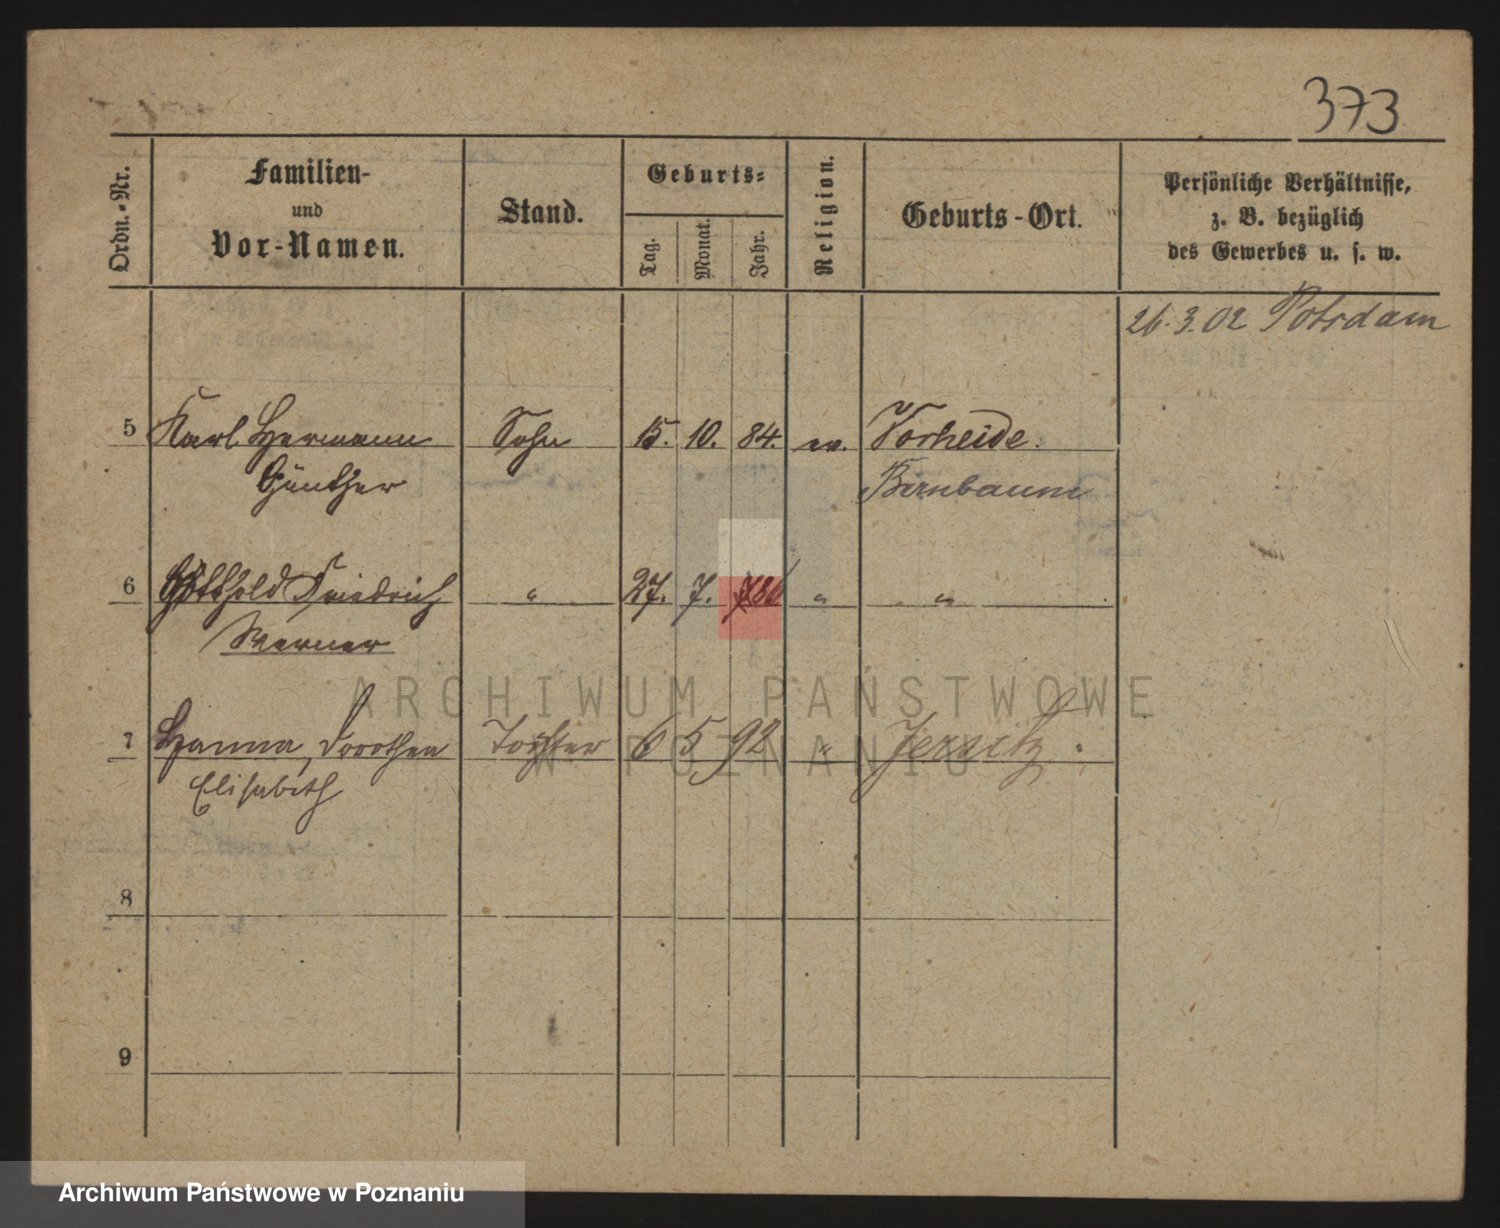 373
Ordn.-Nr.
Familien-
und
Vor-Namen.
Stand.
Geburts-
Tag.
Monat.
Jahr.
Religion.
Geburts-Ort.
Persönliche Verhältnisse,
z. B. bezüglich
des Gewerbes u. s. w.
26.3.02 Potsdam
5 Karl Hermann Sohn 15. 10. 84. ev. Vorheide.
Günther Birnbaum
6 Gotthold Friedrich " 27. 7. 86 " "
Werner
ARCHIWUM PAŃSTWOWE
7 Hanna, Dorothea Tochter 6 5 92 " Jersitz.
W POZNANIU
Elisabeth
8
9
Archiwum Państwowe w Poznaniu